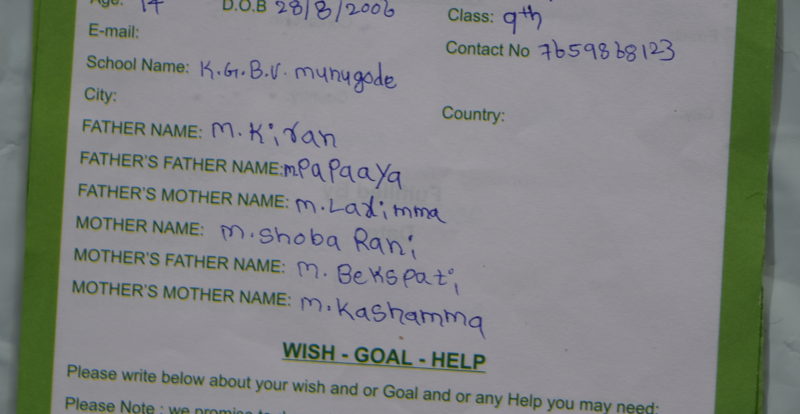 Age: 14 D.O.B 28/8/2006 Class: 9th
E-mail: Contact No 7659868123
School Name: K.G.B.V. munugode
City: Country:
FATHER NAME: M. Kiran
FATHER'S FATHER NAME: m Papaaya
FATHER'S MOTHER NAME: m. Ladimma
MOTHER NAME: m. Shoba Rani
MOTHER'S FATHER NAME: m. Bekspati
MOTHER'S MOTHER NAME: m. Kashamma
WISH - GOAL - HELP
Please write below about your wish and or Goal and or any Help you may need:
Please Note : we promise